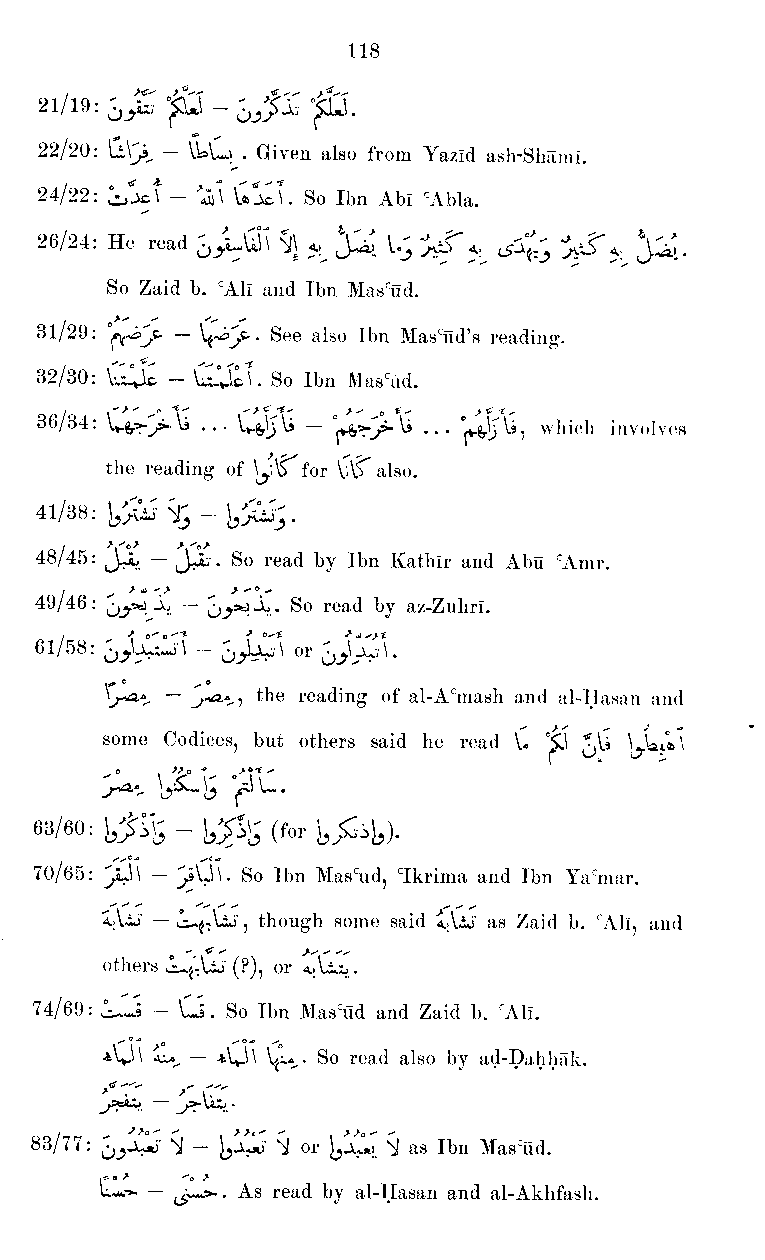 118
21/19: لَعَلَّكُمْ تَتَّقُونَ – لَعَلَّكُمْ تَذَّكَّرُونَ.
22/20: فِرَاشًا – بِسَاطًا. Given also from Yazīd ash-Shāmī.
24/22: أُعِدَّتْ – أَعَدَّهَا ٱللّٰهُ. So Ibn Abī ʿAbla.
26/24: He read يُضَلُّ بِهِ كَثِيرٌ وَيُهْدَى بِهِ كَثِيرٌ وَمَا يُضَلُّ بِهِ إِلَّا ٱلْفَاسِقُونَ.
So Zaid b. ʿAlī and Ibn Masʿūd.
31/29: عَرَضَهُمْ – عَرَضَهَا. See also Ibn Masʿūd's reading.
32/30: عَلَّمْتَنَا – أَعْلَمْتَنَا. So Ibn Masʿūd.
36/34: فَأَزَلَّهُمَا ... فَأَخْرَجَهُمَا – فَأَزَلَّهُمْ ... فَأَخْرَجَهُمْ, which involves
the reading of كَانُوا for كَانَا also.
41/38: وَلَا تَشْتَرُوا – وَتَشْتَرُوا.
48/45: يُقْبَلُ – تُقْبَلُ. So read by Ibn Kathīr and Abū ʿAmr.
49/46: يُذَبِّحُونَ – يَذْبَحُونَ. So read by az-Zuhrī.
61/58: أَتَسْتَبْدِلُونَ – أَتَبْدِلُونَ or أَتُبَدِّلُونَ.
مِصْرًا – مِصْرَ, the reading of al-Aʿmash and al-Ḥasan and
some Codices, but others said he read ٱهْبِطُوا فَإِنَّ لَكُمْ مَا
سَأَلْتُمْ وَٱسْكُنُوا مِصْرَ.
63/60: وَٱذْكُرُوا – وَٱذَّكِرُوا (for واذتكروا).
70/65: ٱلْبَقَرَ – ٱلْبَاقِرَ. So Ibn Masʿud, ʿIkrima and Ibn Yaʿmar.
تَشَابَهَ – تَشَابَهَتْ, though some said تَشَّابَهَ as Zaid b. ʿAlī, and
others تَشَّابَهَتْ (?), or يَتَشَابَهُ.
74/69: قَسَتْ – قَسَا. So Ibn Masʿūd and Zaid b. ʿAlī.
مِنْهُ ٱلْمَاء – مِنْهَا ٱلْمَاء. So read also by aḍ-Ḍaḥḥāk.
يَتَفَجَّرُ – يَتَفَاجَرُ.
83/77: لَا تَعْبُدُونَ – لَا تَعْبُدُوا or لَا يَعْبُدُوا as Ibn Masʿūd.
حُسْنًا – حُسْنَى. As read by al-Ḥasan and al-Akhfash.